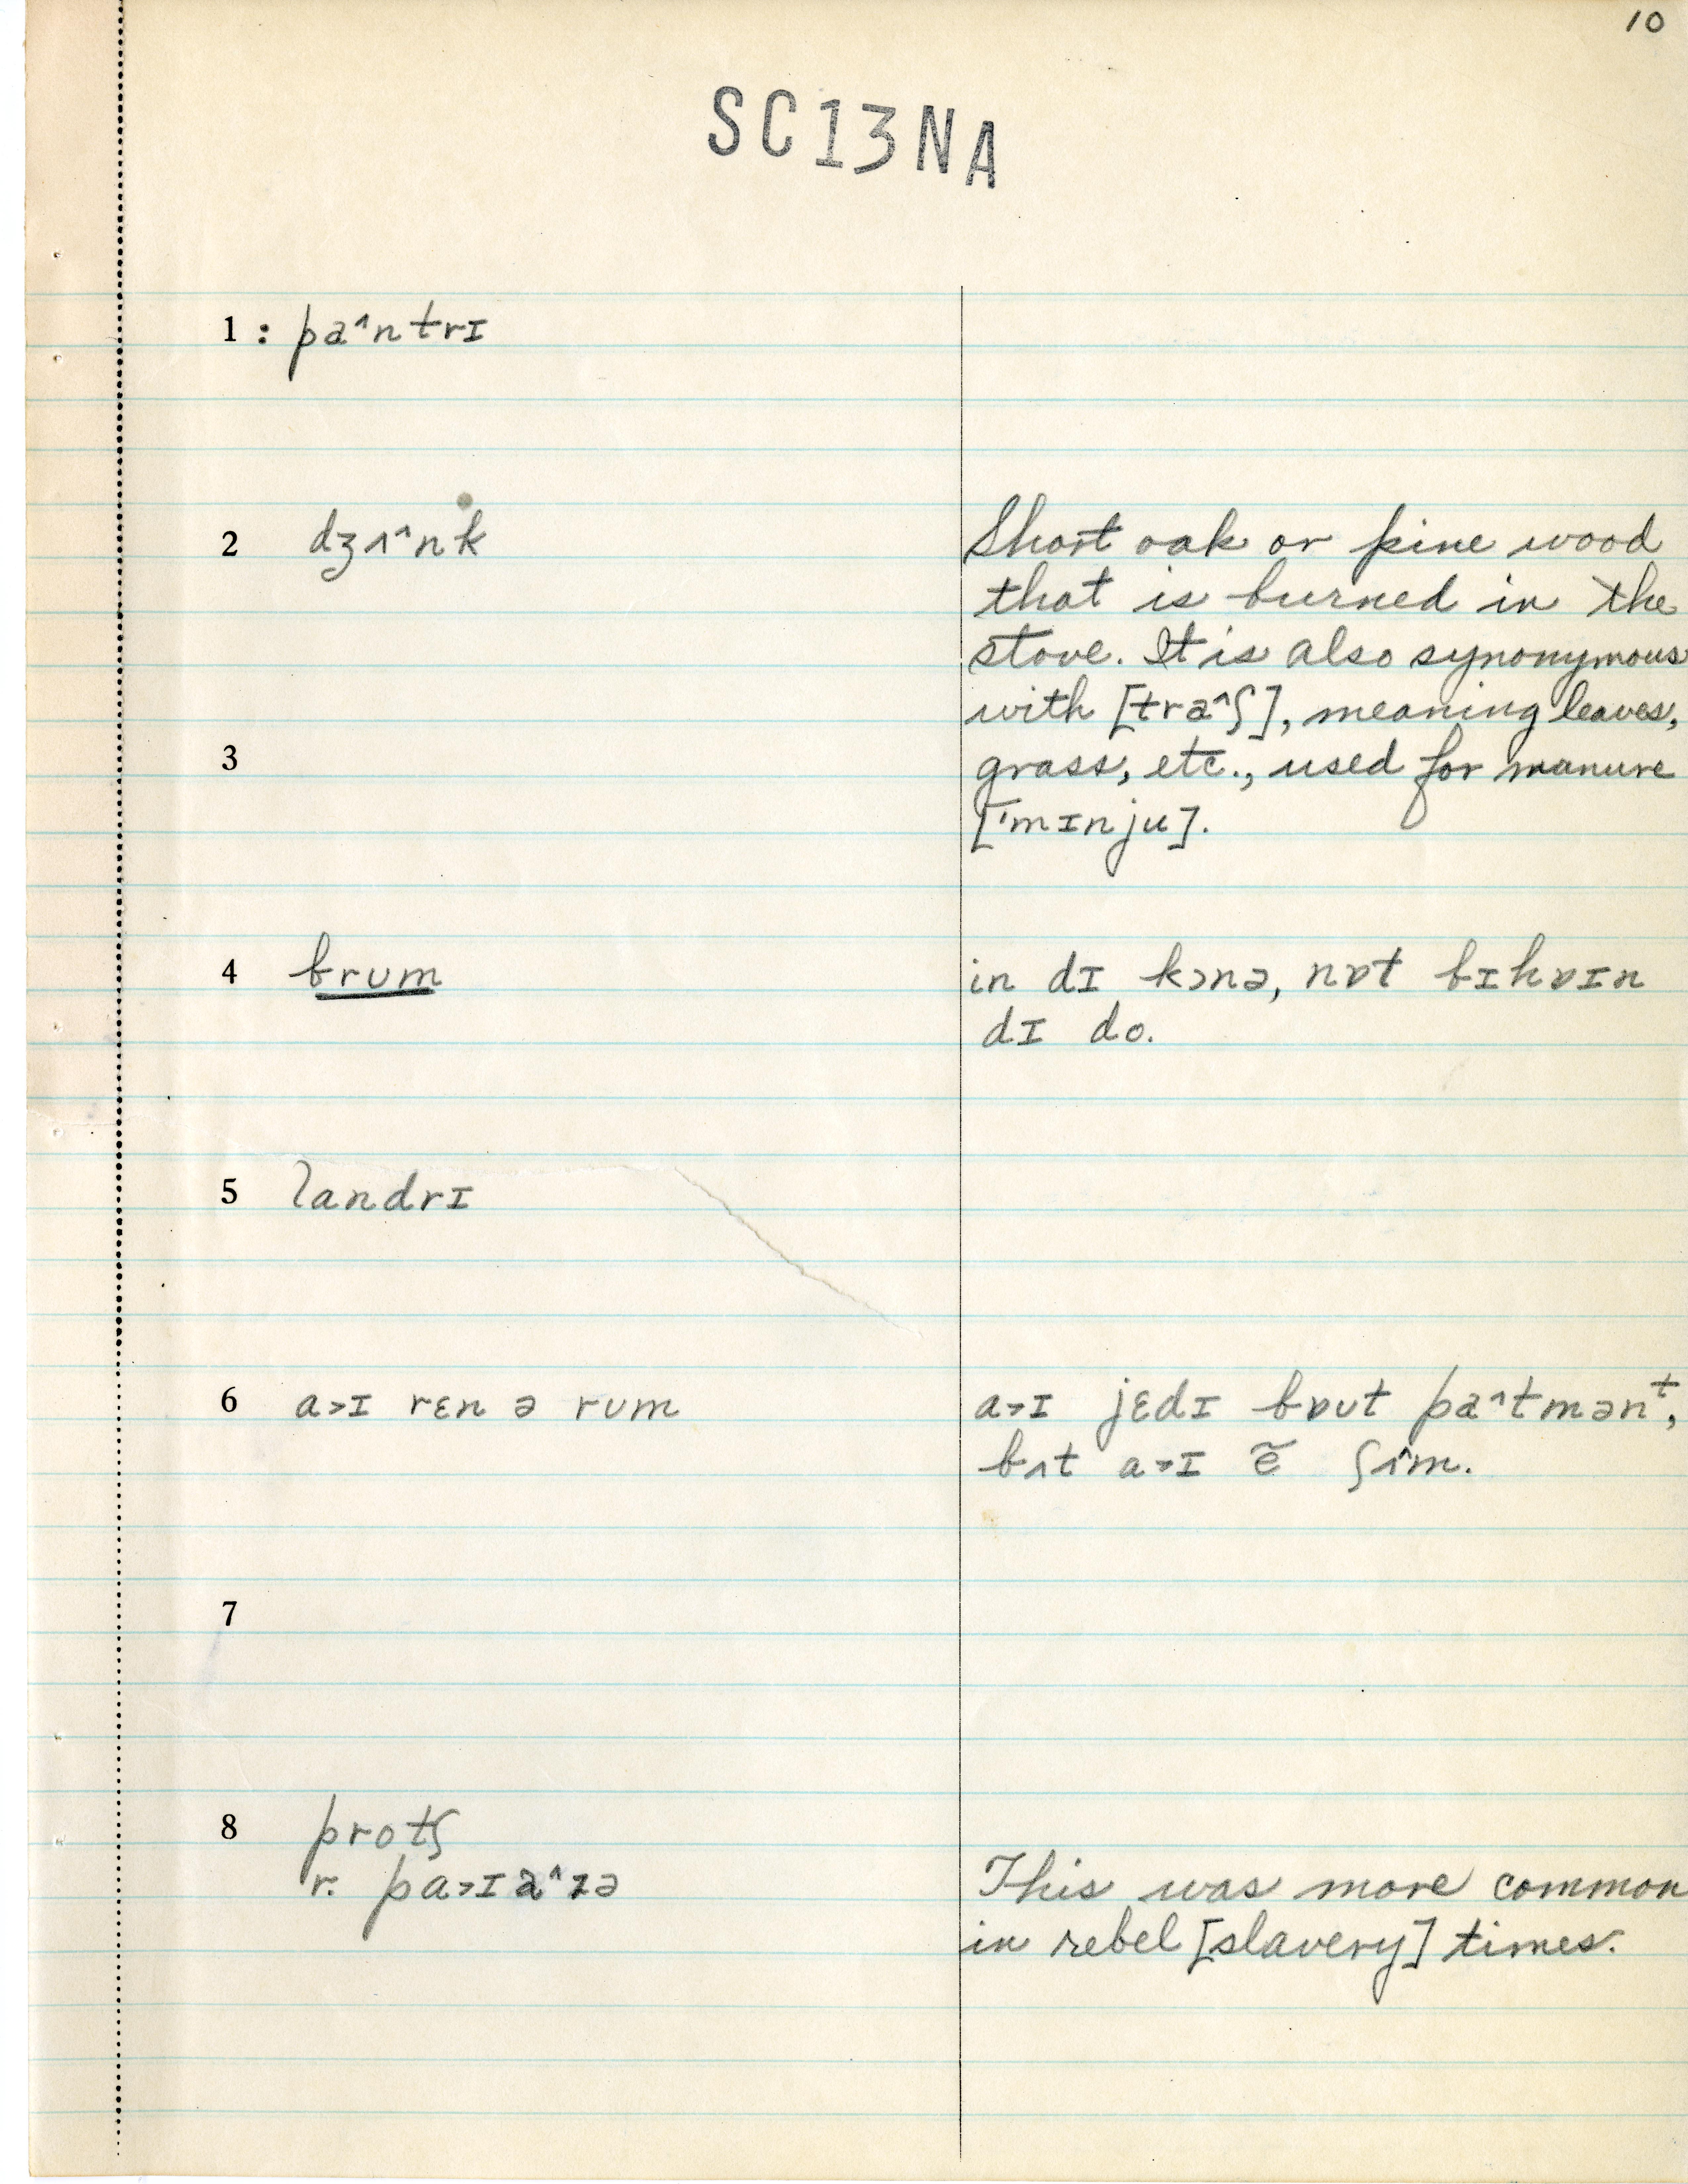 10
SC13NA
1 : pa^ntrɪ
2 dʒʌ^nk
Short oak or pine wood
that is burned in the
stove. It is also synonymous
with [tra^ʃ], meaning leaves,
3
grass, etc., used for manure
['mɪnju].
4 brʊm
in dɪ kɔnə, nɒt bɪhɒɪn
dɪ do.
5 landrɪ
6 a>ɪ rɛn ə rʊm
a>ɪ jɛdɪ bɒʊt pa^tmənᵗ,
bʌt a>ɪ ẽ ʃʌ^m.
7
8 protʃ
r. pa>ɪa^zə
This was more common
in rebel [slavery] times.